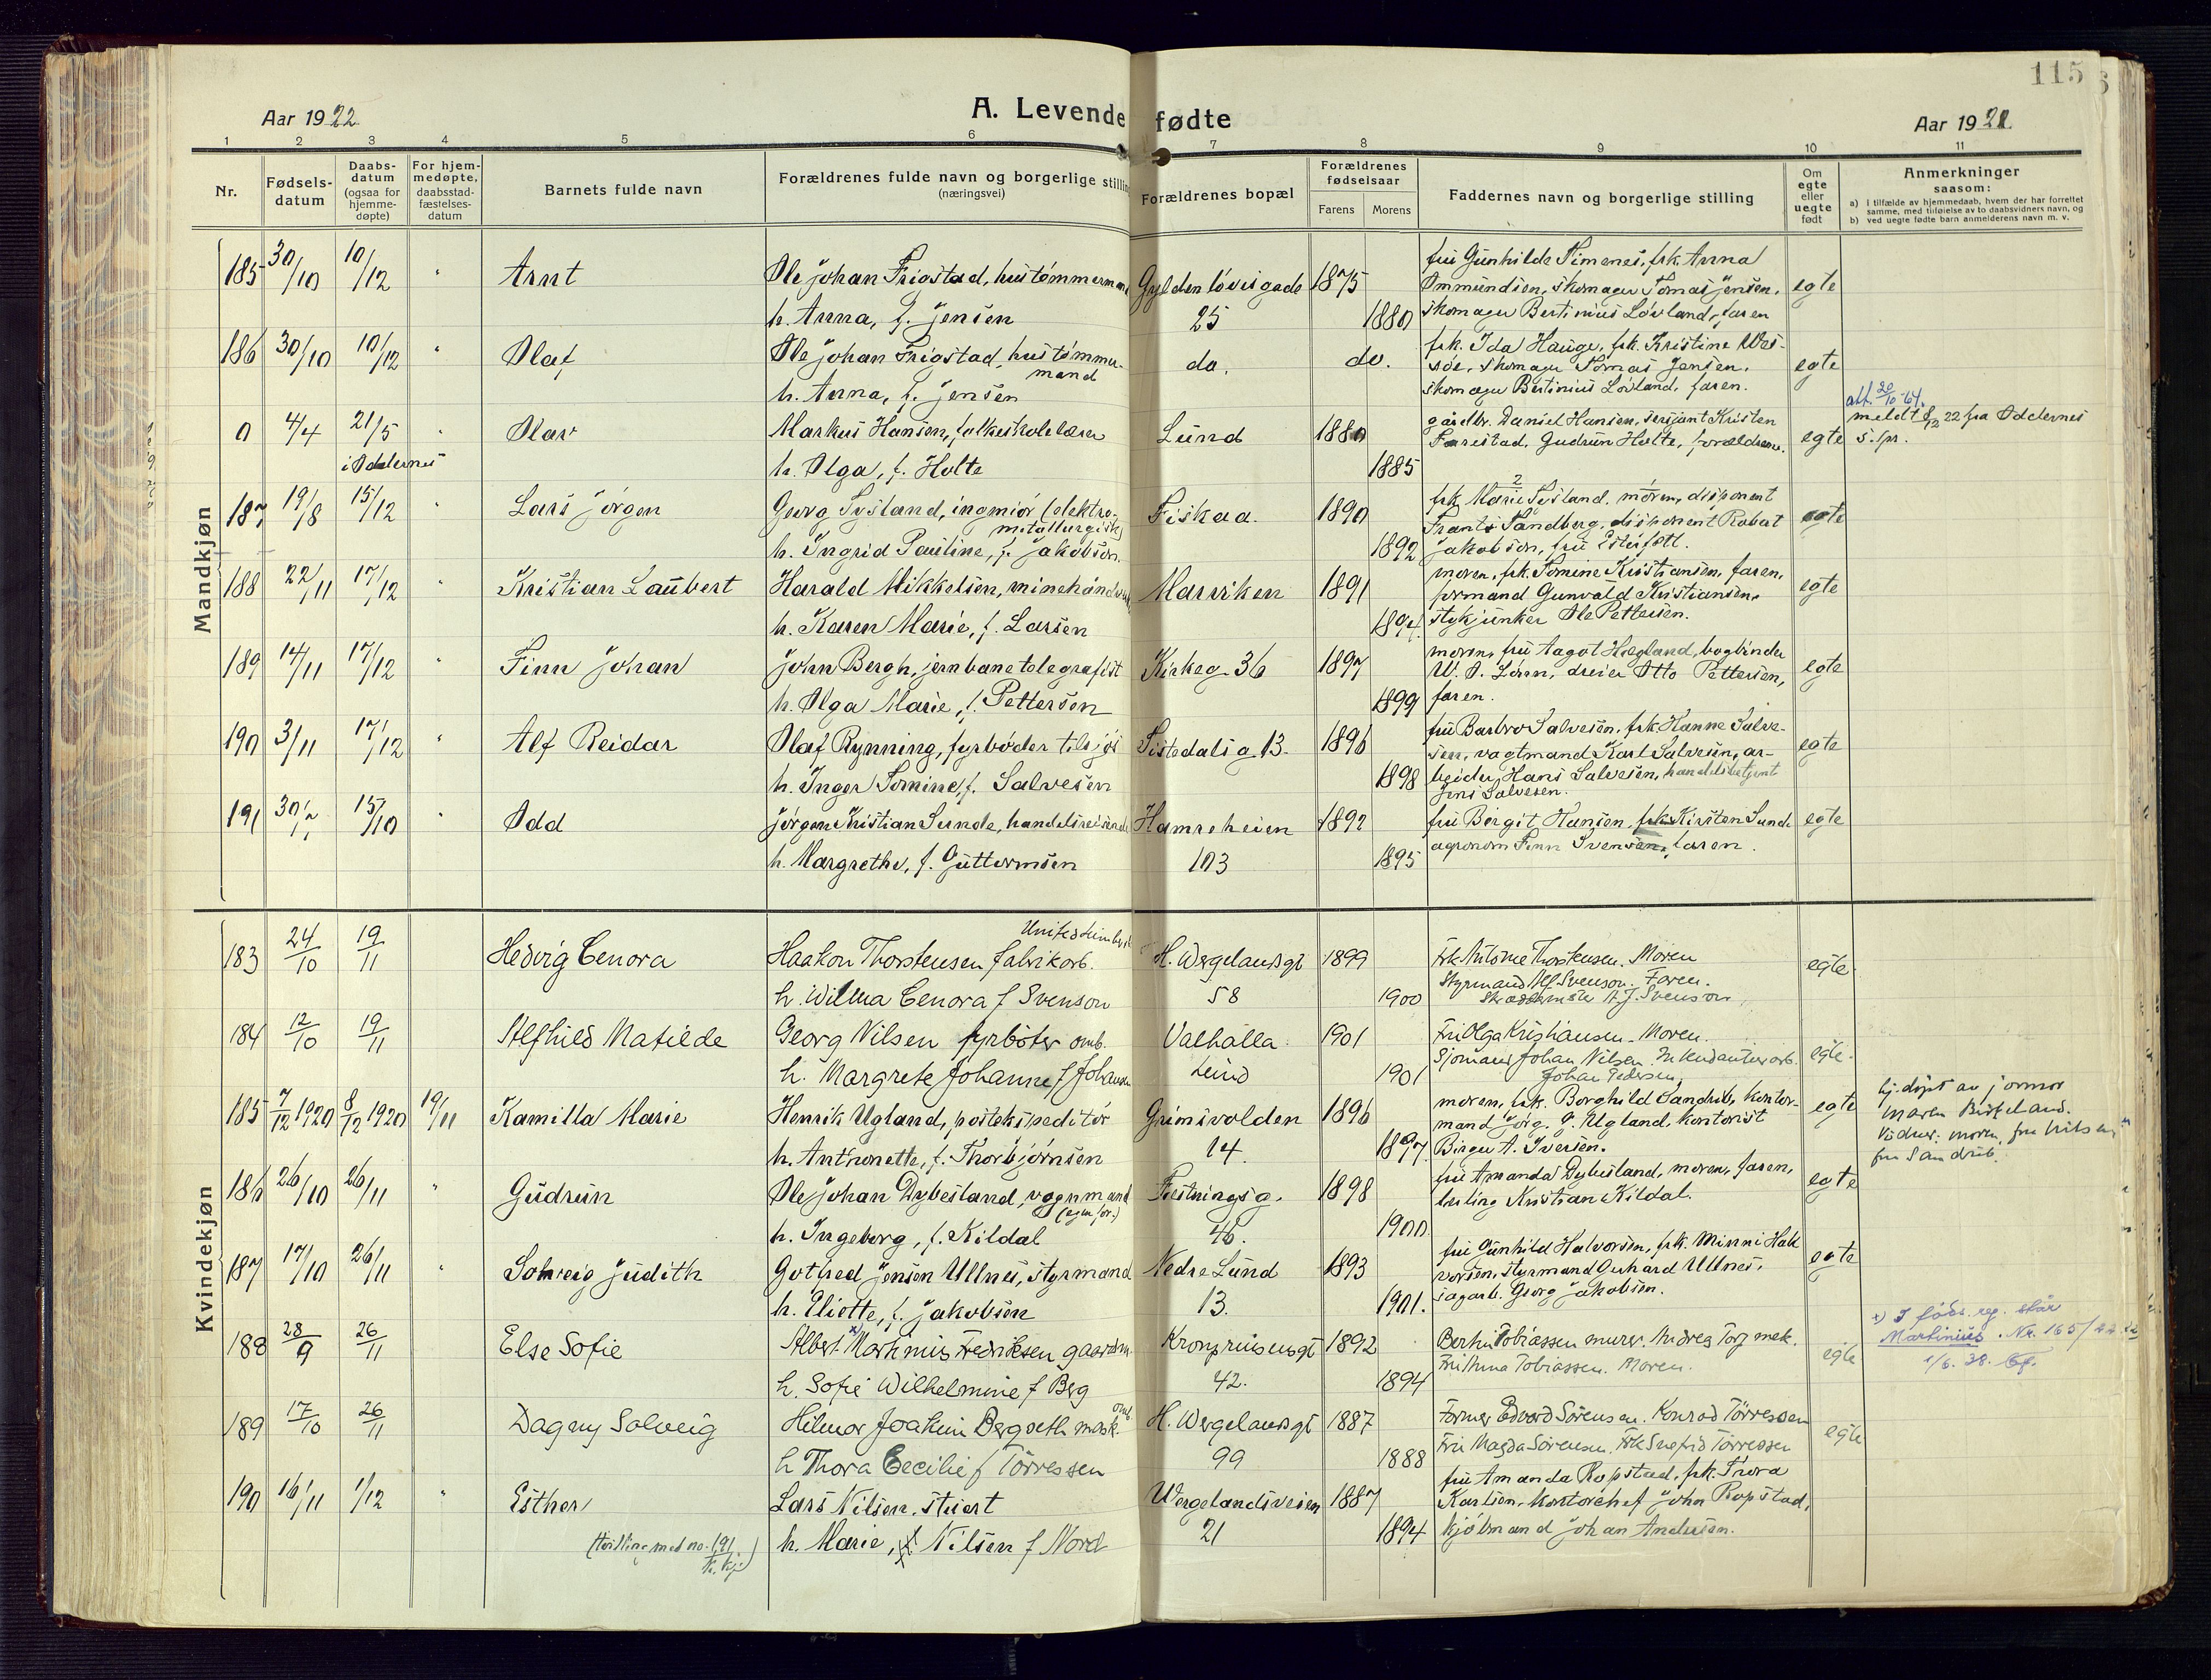 115
Aar 1922
A. Levende fødte
Aar 192
1 2 3 4 5 6 7 8 9 10 11
Nr.
Fødsels-
datum
Daabs-
datum
(ogsaa for
hjemme-
døpte)
For hjem-
medøpte,
daabsstad-
fæstelses-
datum
Barnets fulde navn
Forældrenes fulde navn og borgerlige stilling
(næringsvei)
Forældrenes bopæl
Forældrenes
fødselsaar
Farens Morens
Faddernes navn og borgerlige stilling
Om
egte
eller
uegte
født
Anmerkninger
saasom:
a) i tilfælde av hjemmedaab, hvem der har forrettet
samme, med tilføielse av to daabsvidners navn, og
b) ved uegte fødte barn anmelderens navn m. v.
Mandkjøn
185 30/10 10/12 " Arnt
Ole Johan Frigstad, hustømmermand
h. Anna, f. Jensen
Gyldenløvesgade
25
1875
1880
fru Gunhilde Timenes, frk. Anna
Ommundsen, skomager Tomas Jensen,
skomager Bertinius Løvland, faren
egte
186 30/10 10/12 " Olaf
Ole Johan Frigstad, hustømmer-
mand
h. Anna, f. Jensen
do.
do.
frk. Ida Hauge, frk. Kristine
skomager Tomas Jensen,
skomager Bertinius Løvland, faren.
egte
0 4/4 21/5 " Olav
i Oddernes
Markus Hansen, folkeskolelærer
h. Olga, f. Holte
Lund
1880
1885
gårdbr. Daniel Hansen, sersjant Kristen
Farestad, Gudrun Holte, forældrene.
egte
att. 20/10-64.
meldt 8/12 22 fra Oddernes
s.pr.
187 19/8 15/12 " Lars Jørgen
Georg Tysland, ingeniør (elektro-
metallurgisk)
h. Ingrid Pauline, f. Jakobsen.
Fiskaa.
1890
1892
frk. Marie Tysland, moren, disponent
Frants Sandberg, disponent Robert
Jakobsen, fru
egte
188 22/11 17/12 " Kristian Laubert
Harald Mikkelsen,
h. Karen Marie, f. Larsen
Marviken
1891
1894
moren, frk. Tomine Kristiansen, faren,
formand Gunvald Kristiansen,
stykjunker Ole Pettersen.
egte
189 14/11 17/12 " Finn Johan
John Bergh, jernbanetelegrafist
h. Olga Marie, f. Pettersen
Kirkeg. 36
1897
1899
moren, fru Aagot Hægland, bogbinder
dreier Otto Pettersen,
faren.
egte
190 3/11 17/12 " Alf Reidar
Olaf Rynning, fyrbøder tilsjøs
h. Inger Tomine, f. Salvesen
Tistedalsg 13.
1896
1898
fru Barbro Salvesen, frk. Hanne Salve-
sen, vagtmand Karl Salvesen, ar-
beider Hans Salvesen, handelsbetjent
Jens Salvesen.
egte
191 15/10 " Odd
Jørgen Kristian Sunde, handelsreisende
h. Margrethe, f. Guttormsen
Hamreheien
103
1892
1895
fru Borgit Hansen, frk Kirsten Sunde
agronom Finn Svensen, faren.
egte
Kvindekjøn
183 24/10 19/11 Hedvig Cenora
Haakon Thorstensen fabrikarb.
h. Wilma Cenora f Svenson
H. Wergelandsgt
58
1899
1900
Frk. Thorstensen. Moren
Styrmand Alf Svenson. Faren.
A. J. Svenson.
egte
184 12/10 19/11 Alfhild Matilde
Georg Nilsen fyrbøter omb.
h. Margrete Johanne f Johansen
Valhalla
Lund
1901
1901
Fru Olga Kristiansen. Moren.
Sjømand Johan Nilsen. Intendanturarb.
Johan Pedersen.
egte.
185 7/12 1920 8/12 1920 19/11 Kamilla Marie
Henrik Ugland, postekspeditør
h. Anthonette, f. Thorbjørnsen
Grimsvolden
14.
1896
1897
moren, frk. Borghild Sandrib, kontor-
mand Jørg. G. Ugland, kontorist
Birger A. Iversen.
egte
hj. døpt av jormor
Maren Birkeland.
Vidner: moren, fru Nilsen,
fru Sandrib.
186 26/10 26/11 " Gudrun
Ole Johan Dybesland, vognmand
(egen for.)
h. Ingeborg, f. Kildal
Festningsg.
46.
1898
1900
fru Amanda Dybesland, moren, faren,
lærling Kristian Kildal.
egte
187 17/10 26/11 " Solveig Judith
Gotfred Jensen Ullnes, styrmand
h. Eliette, f. Jakobsen
Nedre Lund
13.
1893
1901.
fru Gunhild Halvorsen, frk. Minni Hal
vorsen, styrmand Gerhard Ullnes,
sagarb. Georg Jakobsen.
egte
188 28/9 26/11 Else Sofie
Albert x) Martinius Fredriksen gaardm.
h. Sofie Wilhelmine f Berg
Kronprinsensgt
42.
1892
1894
Tobiassen murer. Andreas Torp mek.
Fru Anna Tobiassen. Moren.
egte
x) Iføds. reg. står
Martinius. Nr. 165/22
1/6. 38.
189 17/10 26/11 Dagny Solveig
Hilmar Joakim Bergseth mask. omb.
h Thora Cecilie f Törressen
H. Wergelandsgt
99
1887
1888
Former Edvard Sörensen. Konrad Törressen
Fru Magda Sörensen. Frk Snefrid Törressen
egte
190 16/11 1/12 " Esther
(tvilling med no. 191
k. kj.)
Lars Nilsen, stuert
h. Marie, f. Nilsen f Nord
Wergelandsveien
21
1887
1894
fru Amanda Ropstad, frk. Thora
Karlsen, kontorchef John Ropstad,
kjølmand Johan Andersen.